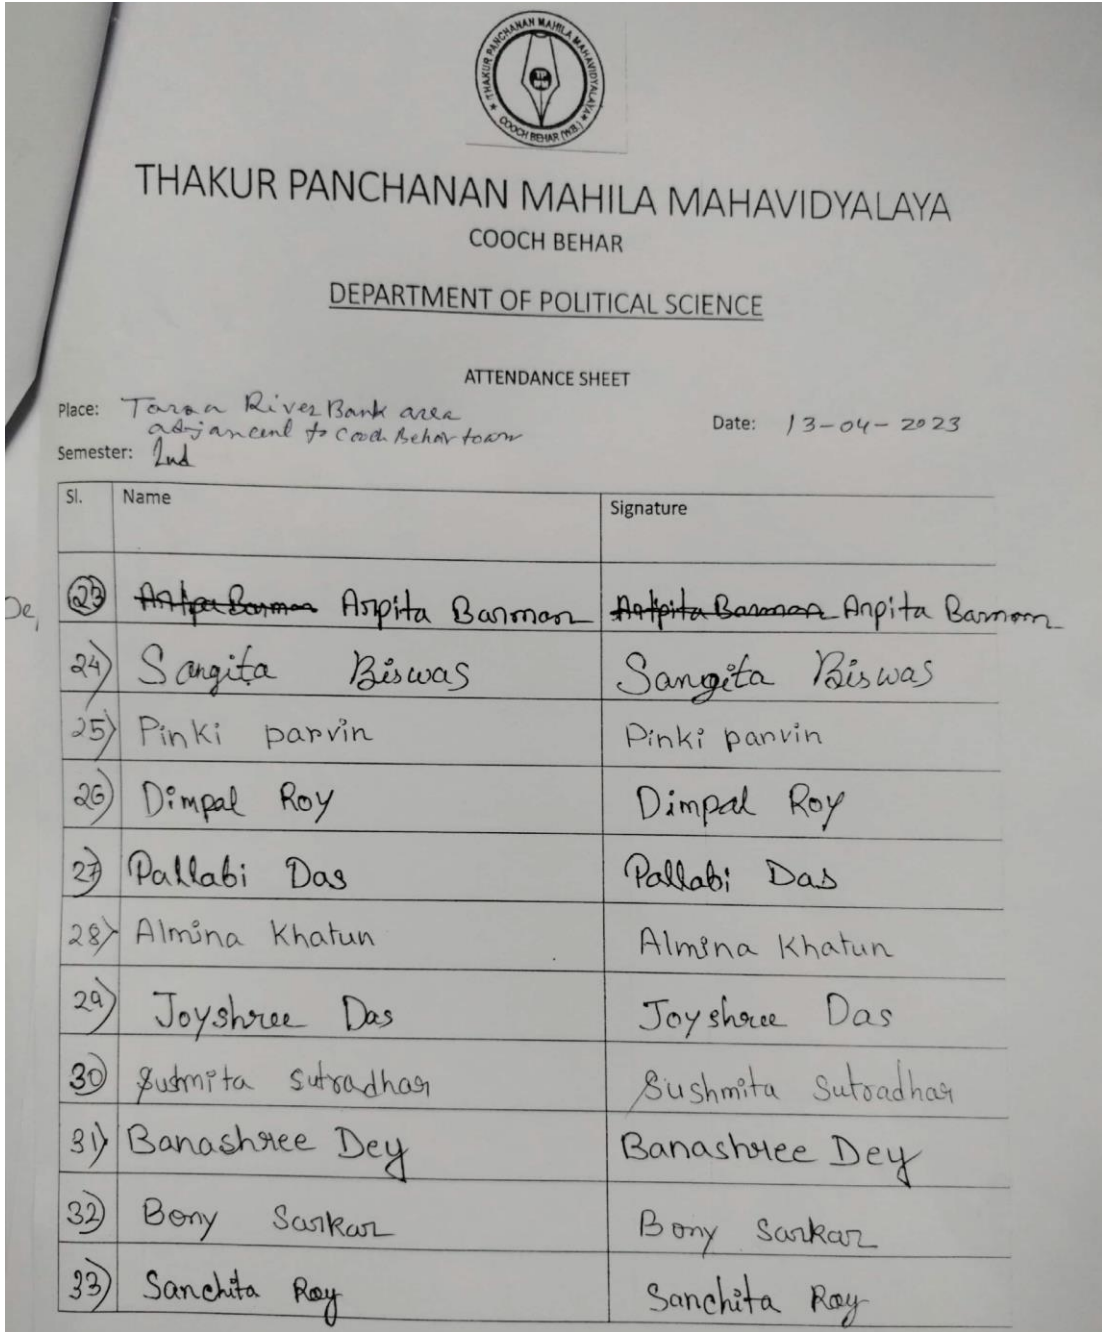 THAKUR PANCHANAN MAHILA MAHAVIDYALAYA
COOCH BEHAR (W.B.)
THAKUR PANCHANAN MAHILA MAHAVIDYALAYA
COOCH BEHAR
DEPARTMENT OF POLITICAL SCIENCE
ATTENDANCE SHEET
Place: Torsa River Bank area
adjancent to Cooch Behar town
Date: 13-04-2023
Semester: 2nd
Sl. Name Signature
23 Arpita Barman Arpita Barmom
24) Sangita Biswas Sangita Biswas
25) Pinki parvin Pinki parvin
26) Dimpal Roy Dimpal Roy
27) Pallabi Das Pallabi Das
28) Almina Khatun Almina Khatun
29) Joyshree Das Joyshree Das
30) Sushmita Sutradhar Sushmita Sutradhar
31) Banashree Dey Banashree Dey
32) Bony Sarkar Bony Sarkar
33) Sanchita Roy Sanchita Roy